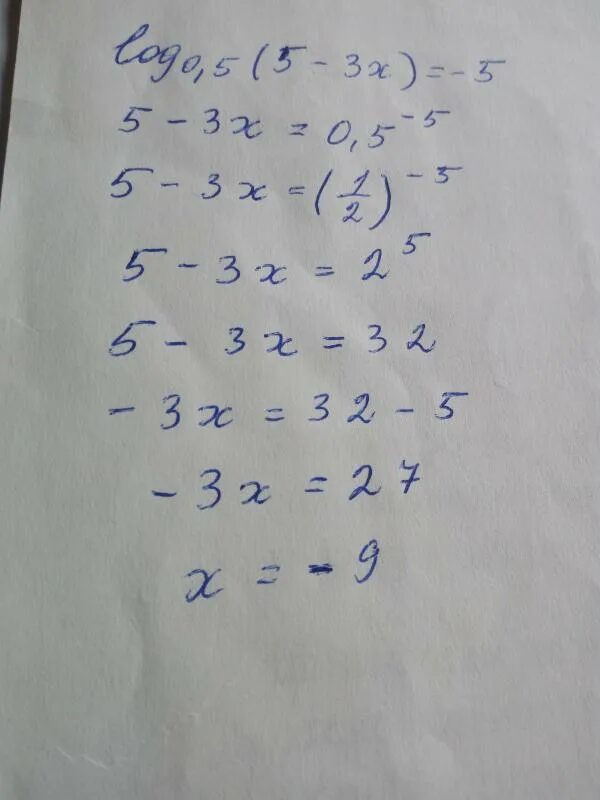 log₀,₅(5-3x)=-5
5-3x=0,5⁻⁵
5-3x=(1/2)⁻⁵
5-3x=2⁵
5-3x=32
-3x=32-5
-3x=27
x=-9